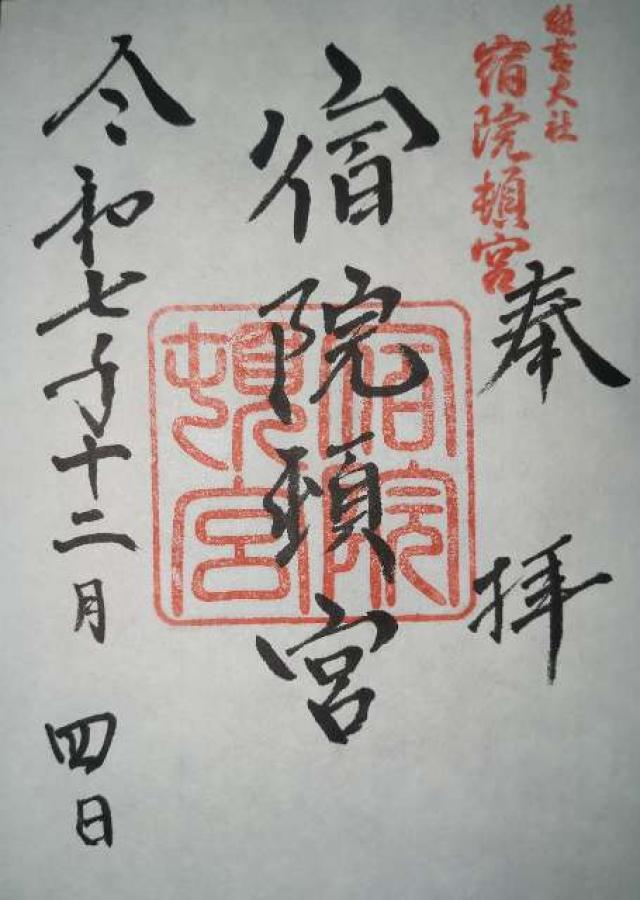 住吉大社
宿院頓宮
奉拝
宿院頓宮
宿院頓宮
令和七年十二月四日